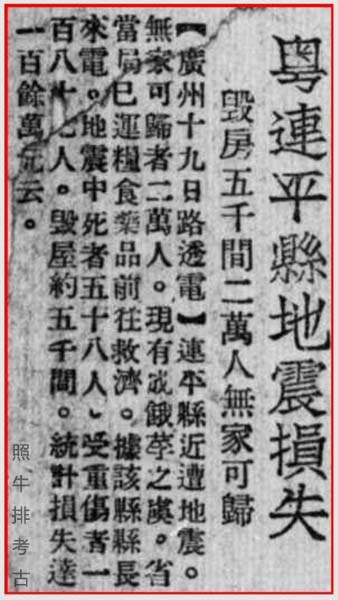 粵連平縣地震損失
毀房五千間二萬人無家可歸
【廣州十九日路透電】連平縣近遭地震。
無家可歸者二萬人。現有成餓莩之虞。省
當局已運糧食藥品前往救濟。據該縣縣長
來電。地震中死者五十八人、受重傷者一
百八十人。毀屋約五千間。統計損失達
一百餘萬元云。
照牛排考古